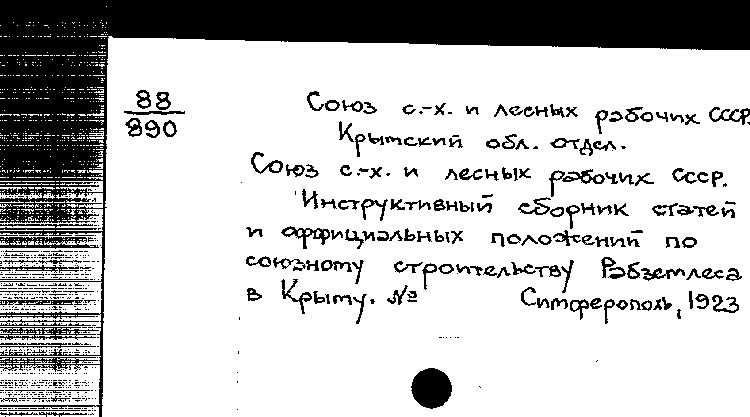 88
890
Союз с.-х. и лесных рабочих СССР.
Крымский обл. отдел.
Союз с.-х. и лесных рабочих СССР.
Инструктивный сборник статей
и оффициальных положений по
союзному строительству Рабземлеса
в Крыму. № Симферополь, 1923